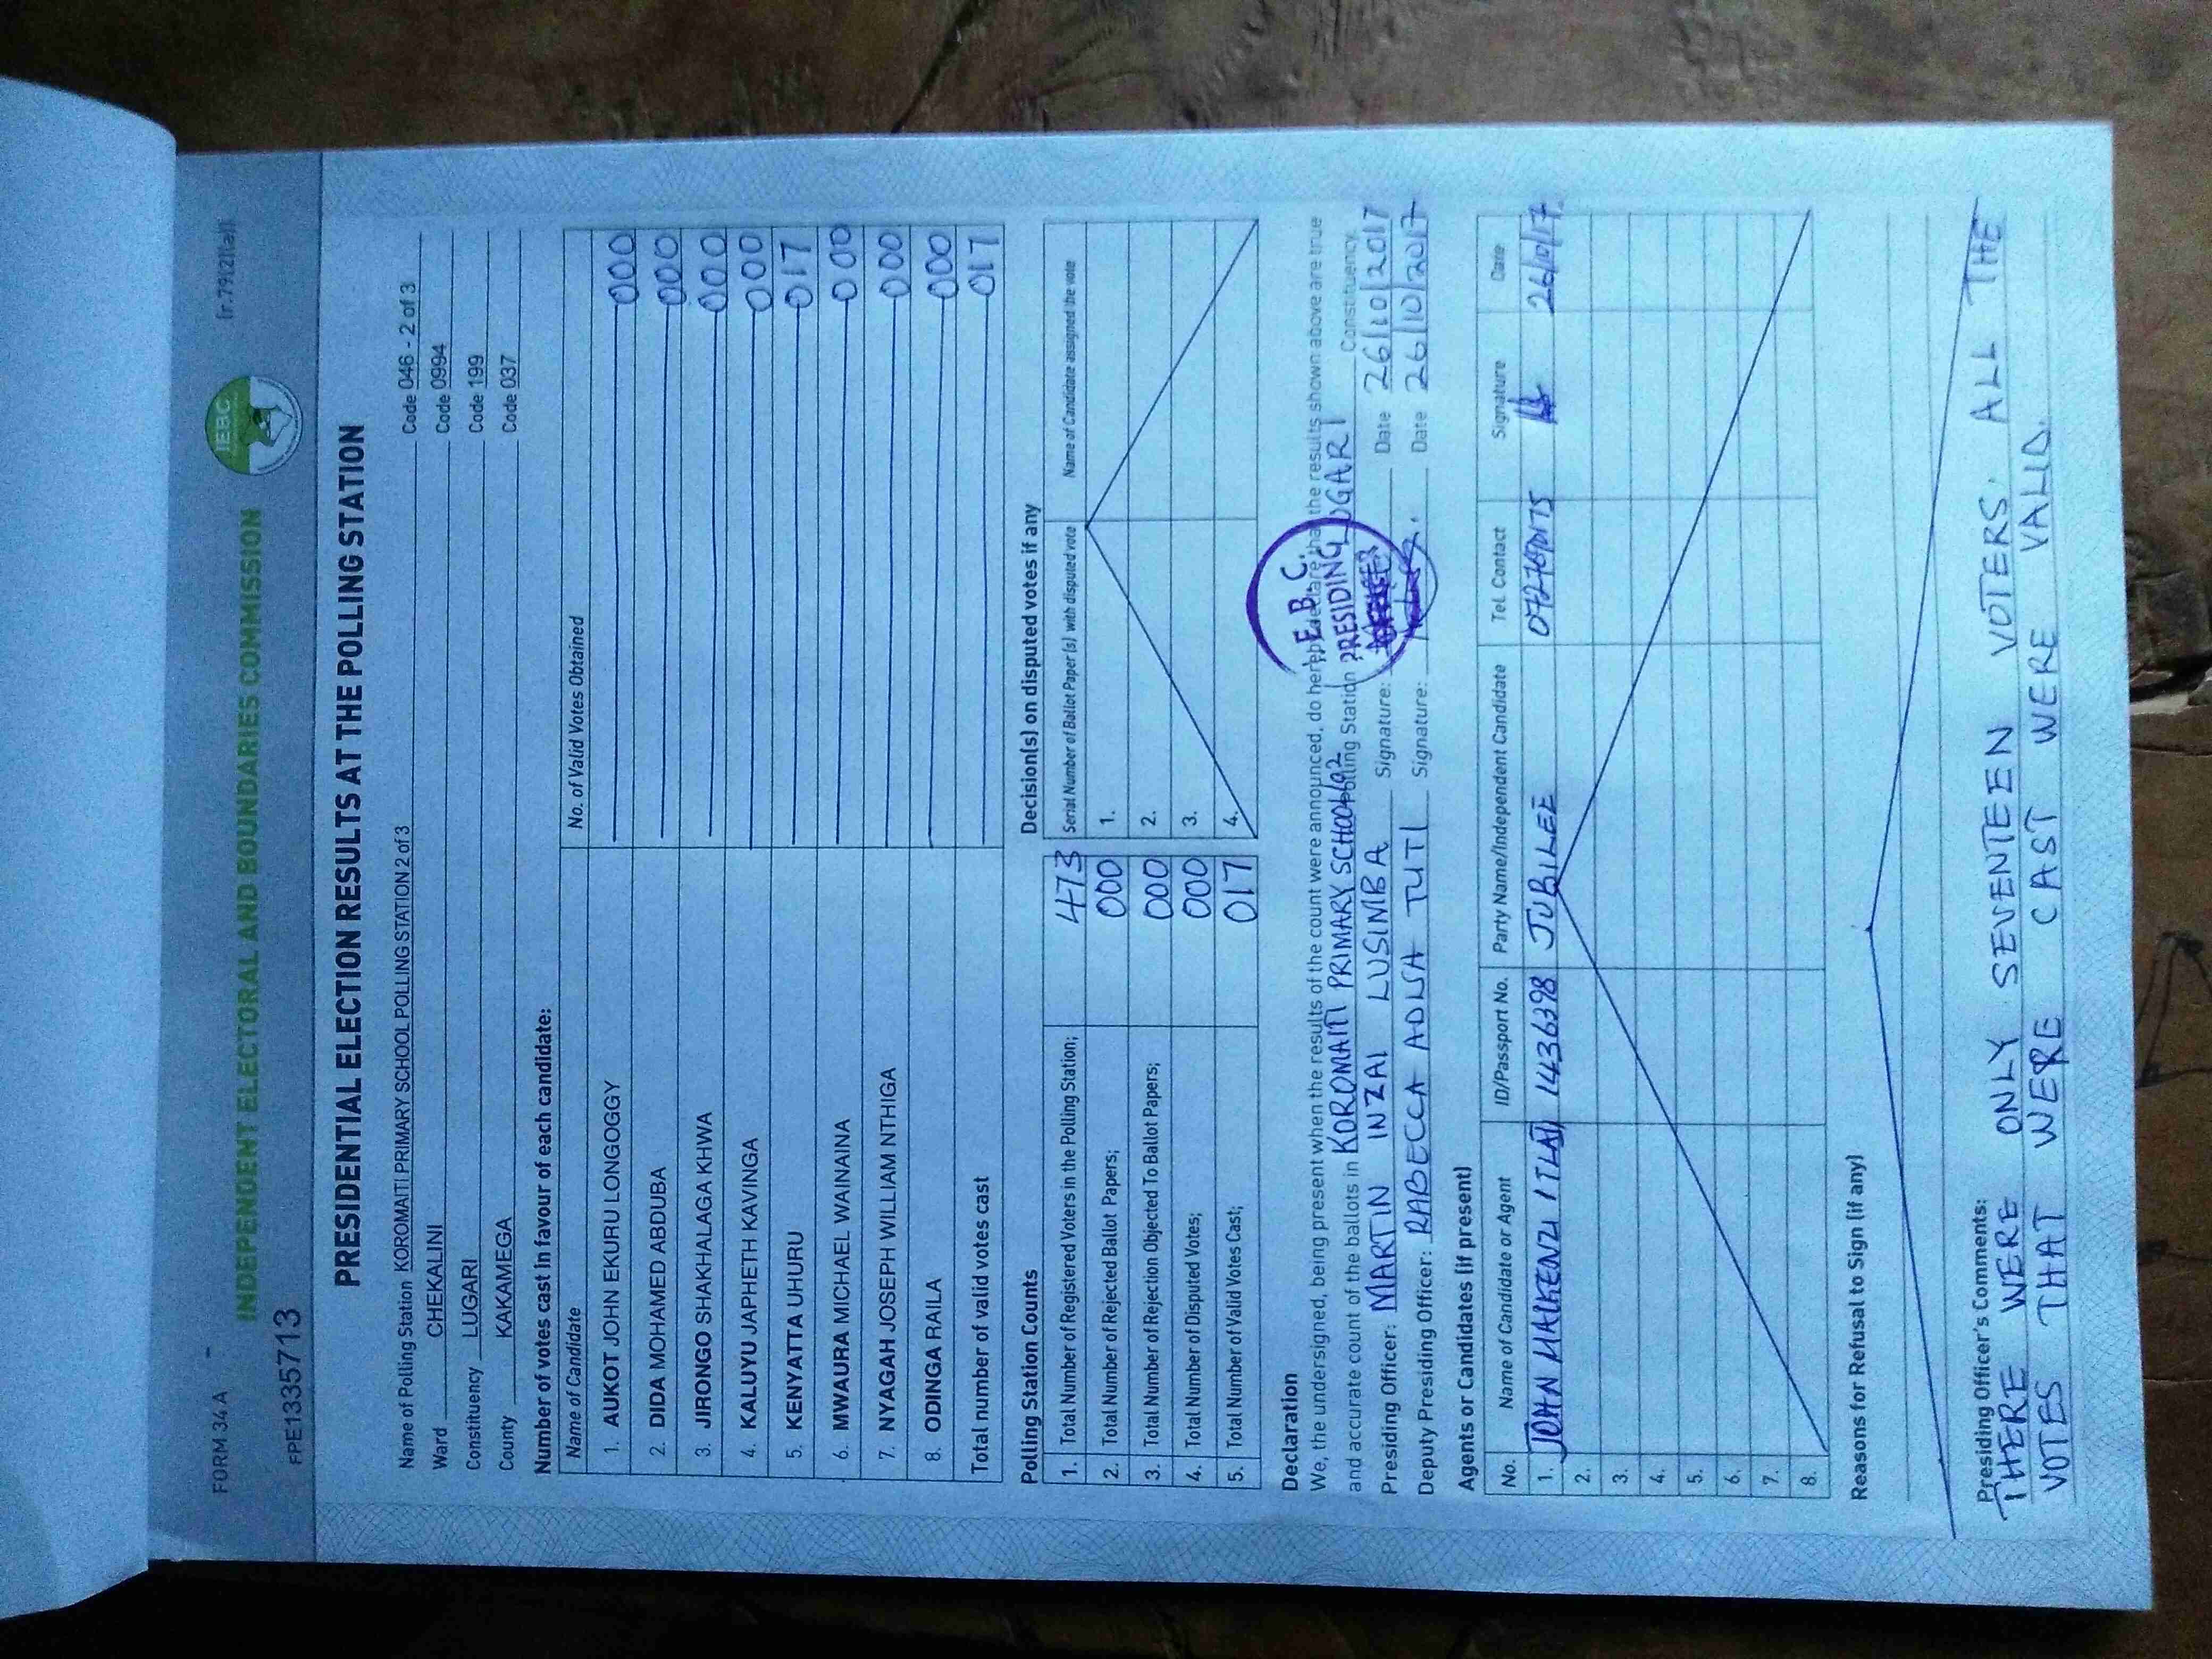 FORM 34 A
(r.79(2)(a))
INDEPENDENT ELECTORAL AND BOUNDARIES COMMISSION
IEBC
FPE1335713
PRESIDENTIAL ELECTION RESULTS AT THE POLLING STATION
Name of Polling Station KOROMAITI PRIMARY SCHOOL POLLING STATION 2 of 3 Code 046 - 2 of 3
Ward CHEKALINI Code 0994
Constituency LUGARI Code 199
County KAKAMEGA Code 037
Number of votes cast in favour of each candidate:
Name of Candidate No. of Valid Votes Obtained
1. AUKOT JOHN EKURU LONGOGGY 000
2. DIDA MOHAMED ABDUBA 000
3. JIRONGO SHAKHALAGA KHWA 000
4. KALUYU JAPHETH KAVINGA 000
5. KENYATTA UHURU 017
6. MWAURA MICHAEL WAINAINA 000
7. NYAGAH JOSEPH WILLIAM NTHIGA 000
8. ODINGA RAILA 000
Total number of valid votes cast 017
Polling Station Counts
1. Total Number of Registered Voters in the Polling Station; 473
2. Total Number of Rejected Ballot Papers; 000
3. Total Number of Rejection Objected To Ballot Papers; 000
4. Total Number of Disputed Votes; 000
5. Total Number of Valid Votes Cast; 017
Decision(s) on disputed votes if any
Serial Number of Ballot Paper (s) with disputed vote Name of Candidate assigned the vote
1.
2.
3.
4.
Declaration
We, the undersigned, being present when the results of the count were announced, do hereby declare that the results shown above are true
and accurate count of the ballots in KOROMAITI PRIMARY SCHOOL Polling Station LUGARI Constituency.
I. E. B. C.
PRESIDING
Presiding Officer: MARTIN INZAI LUSIMBA Signature: Date 26/10/2017
Deputy Presiding Officer: RABECCA TUTI Signature: Date 26/10/2017
Agents or Candidates (if present)
No. Name of Candidate or Agent ID/Passport No. Party Name/Independent Candidate Tel. Contact Signature Date
1. JOHN 1436398 JUBILEE 26/10/17
2.
3.
4.
5.
6.
7.
8.
Reasons for Refusal to Sign (if any)
Presiding Officer's Comments:
THERE WERE ONLY SEVENTEEN VOTERS. ALL THE
VOTES THAT WERE CAST WERE VALID.